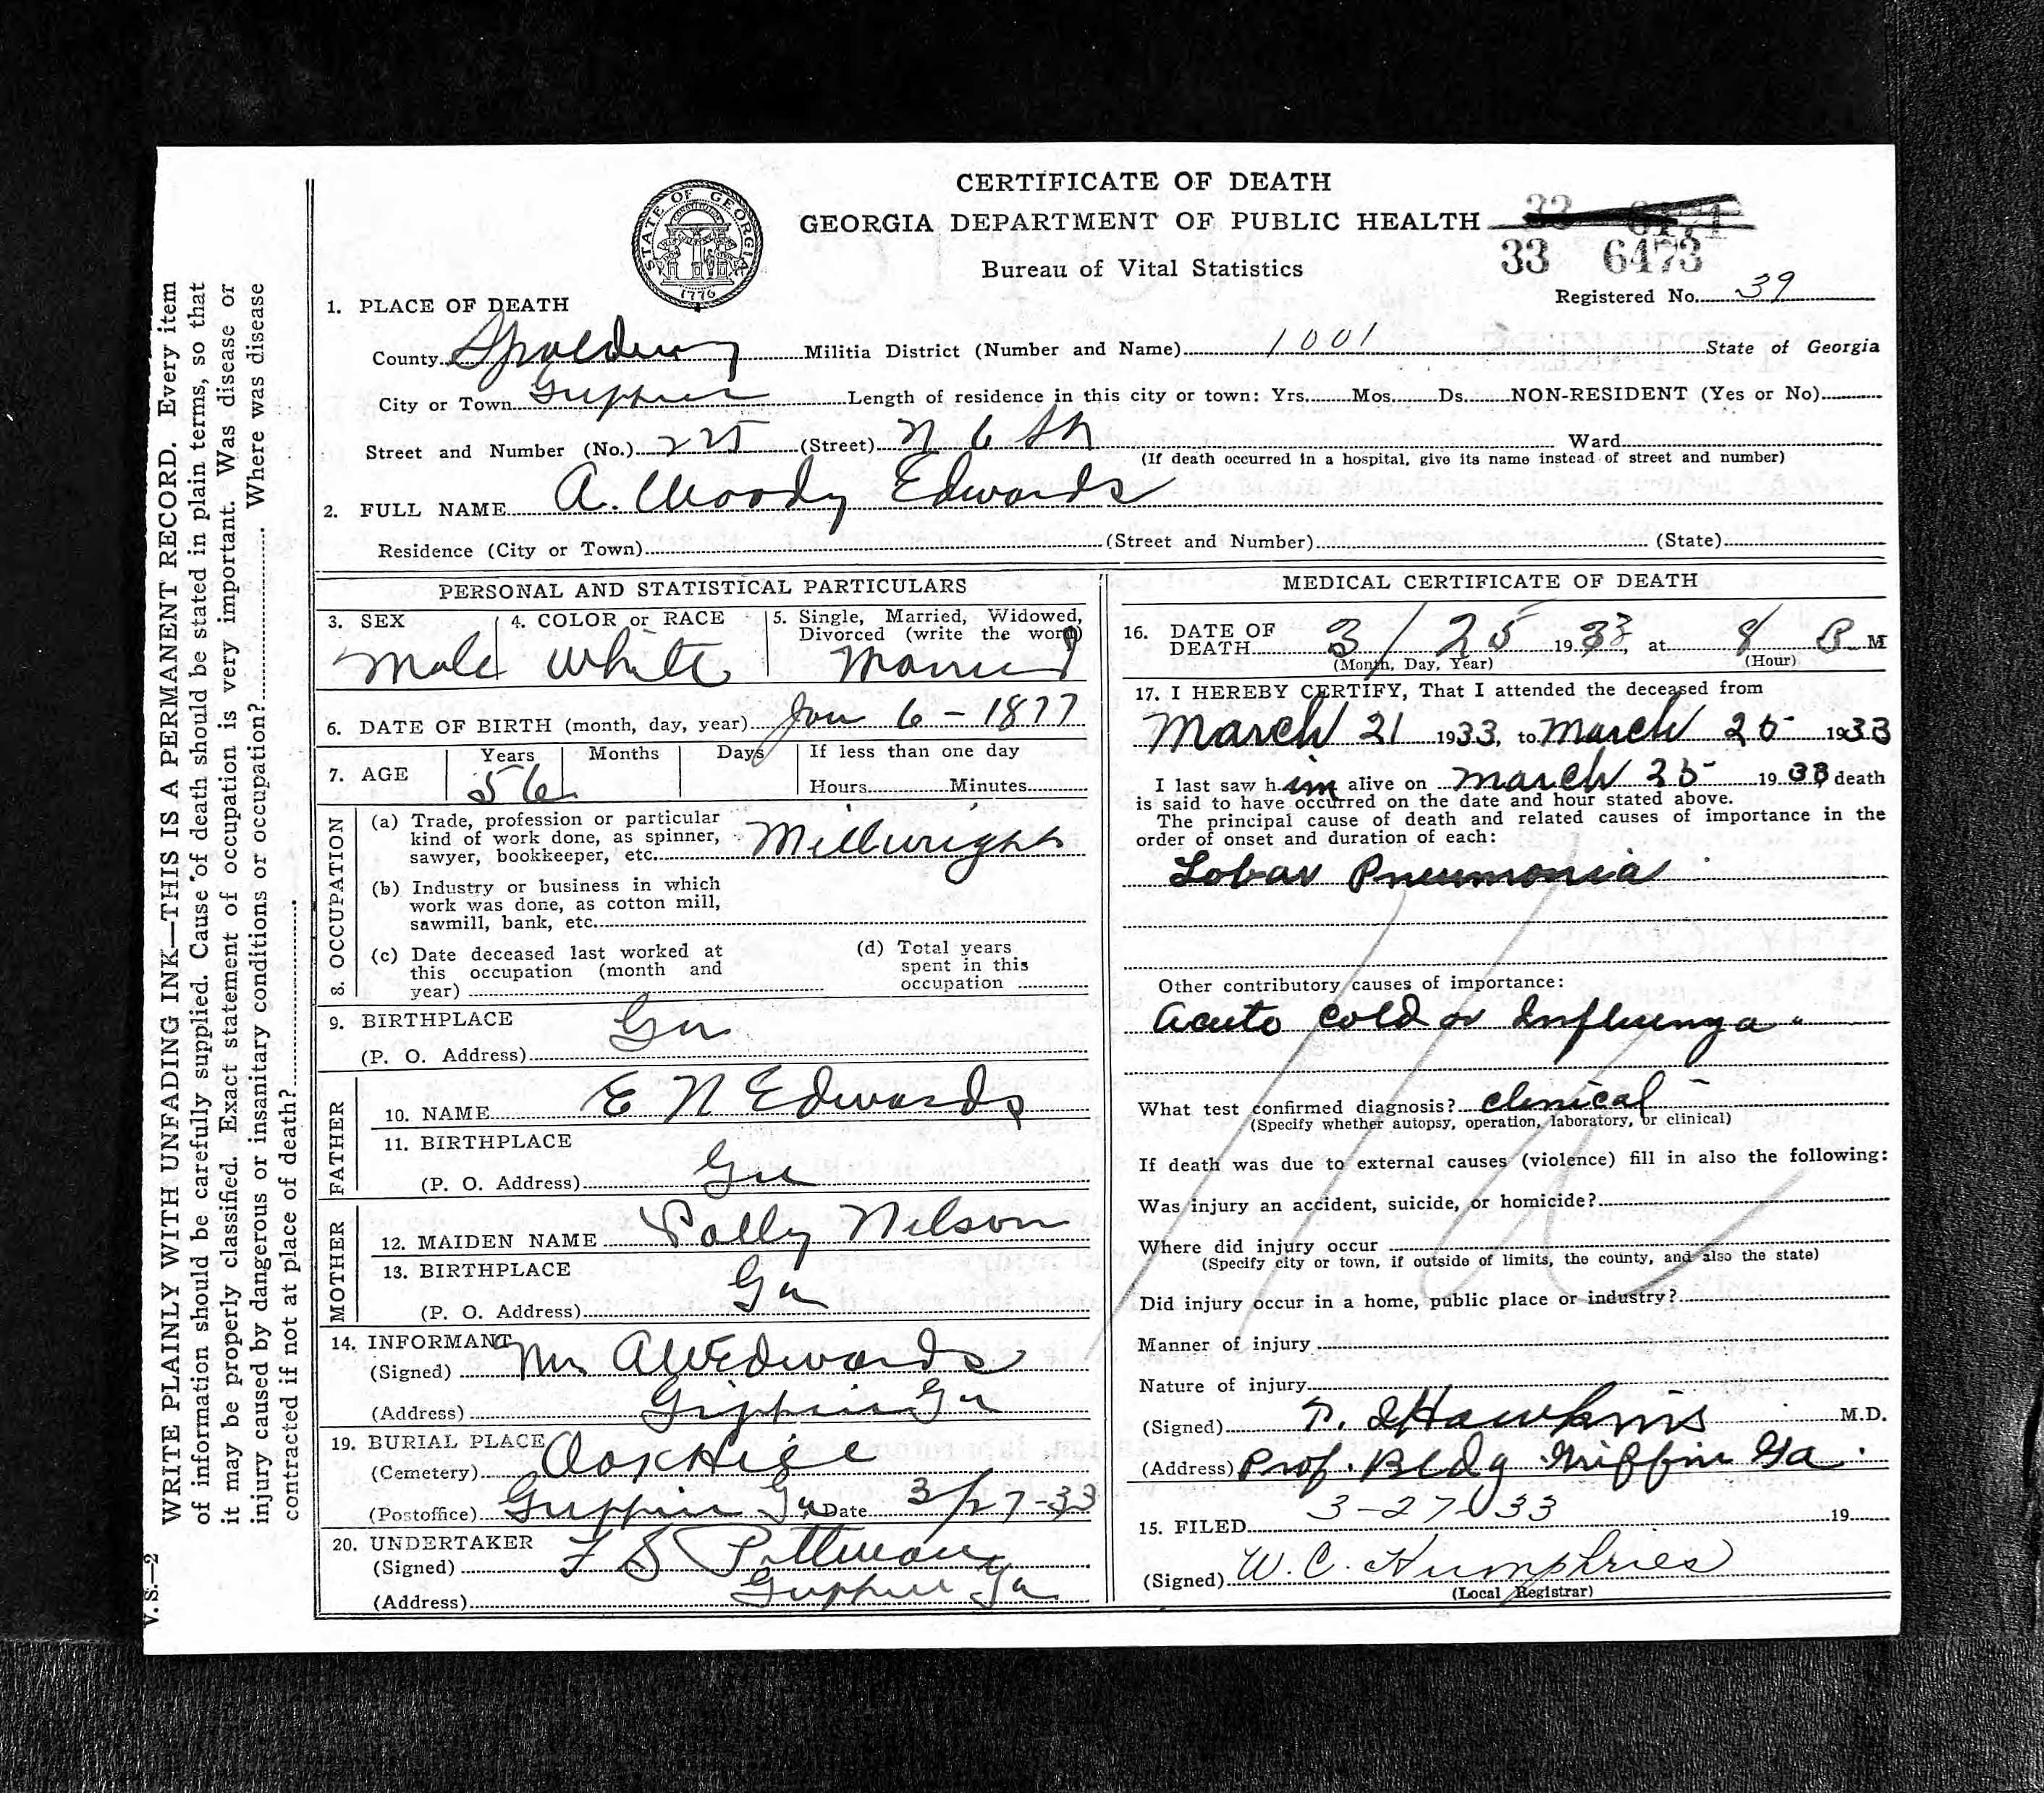 CERTIFICATE OF DEATH
GEORGIA DEPARTMENT OF PUBLIC HEALTH
Bureau of Vital Statistics
33 6473
Registered No. 39
STATE OF GEORGIA
CONSTITUTION
1776
1. PLACE OF DEATH
County Spalding Militia District (Number and Name) 1001 State of Georgia
City or Town Griffin Length of residence in this city or town: Yrs. Mos. Ds. NON-RESIDENT (Yes or No)
Street and Number (No.) 225 (Street) N 6 St Ward
(If death occurred in a hospital, give its name instead of street and number)
2. FULL NAME A. Woody Edwards
Residence (City or Town) (Street and Number) (State)
PERSONAL AND STATISTICAL PARTICULARS
3. SEX 4. COLOR or RACE 5. Single, Married, Widowed, Divorced (write the word)
Male White Married
6. DATE OF BIRTH (month, day, year) Jan 6 - 1877
7. AGE Years Months Days If less than one day
56 Hours Minutes
8. OCCUPATION
(a) Trade, profession or particular
kind of work done, as spinner,
sawyer, bookkeeper, etc. Millwright
(b) Industry or business in which
work was done, as cotton mill,
sawmill, bank, etc.
(c) Date deceased last worked at
this occupation (month and
year)
(d) Total years
spent in this
occupation
9. BIRTHPLACE Ga
(P. O. Address)
FATHER
10. NAME E N Edwards
11. BIRTHPLACE
(P. O. Address) Ga
MOTHER
12. MAIDEN NAME Sally Nelson
13. BIRTHPLACE Ga
(P. O. Address)
14. INFORMANT
(Signed) Mrs A W Edwards
(Address) Griffin Ga
19. BURIAL PLACE
(Cemetery) Oak Hill
(Postoffice) Griffin Ga Date 3/27-33
20. UNDERTAKER
(Signed) F S Pittman
(Address) Griffin Ga
MEDICAL CERTIFICATE OF DEATH
16. DATE OF
DEATH 3/25 1933, at 8 P M
(Month, Day, Year) (Hour)
17. I HEREBY CERTIFY, That I attended the deceased from
March 21 1933, to March 25 1933
I last saw him alive on March 25 1933 death
is said to have occurred on the date and hour stated above.
The principal cause of death and related causes of importance in the
order of onset and duration of each:
Lobar Pneumonia
Other contributory causes of importance:
Acute Cold or Influenza
What test confirmed diagnosis? clinical
(Specify whether autopsy, operation, laboratory, or clinical)
If death was due to external causes (violence) fill in also the following:
Was injury an accident, suicide, or homicide?
Where did injury occur
(Specify city or town, if outside of limits, the county, and also the state)
Did injury occur in a home, public place or industry?
Manner of injury
Nature of injury
(Signed) Hawkins M.D.
(Address) Prof. Bldg Griffin Ga.
15. FILED 3-27-33 19
(Signed) W. C. Humphries
(Local Registrar)
WRITE PLAINLY WITH UNFADING INK—THIS IS A PERMANENT RECORD. Every item
of information should be carefully supplied. Cause of death should be stated in plain terms, so that
it may be properly classified. Exact statement of occupation is very important. Was disease or
injury caused by dangerous or insanitary conditions or occupation? Where was disease
contracted if not at place of death?
V. S.—2